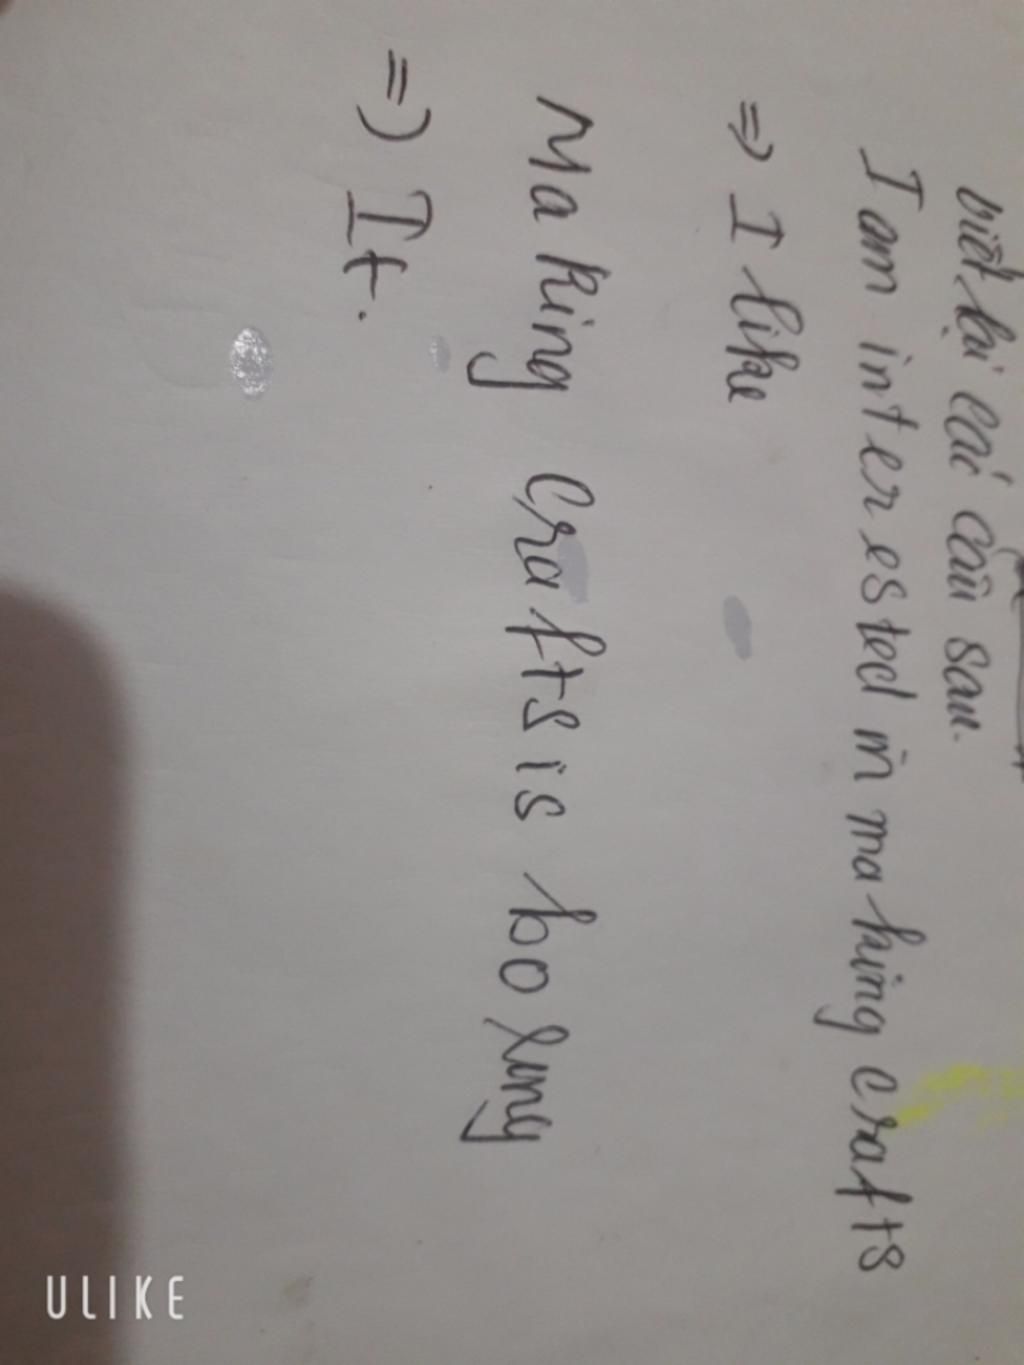 viết lại các câu sau.
I am interested in making crafts
=> I like
Making crafts is boring
=> It.
ULIKE